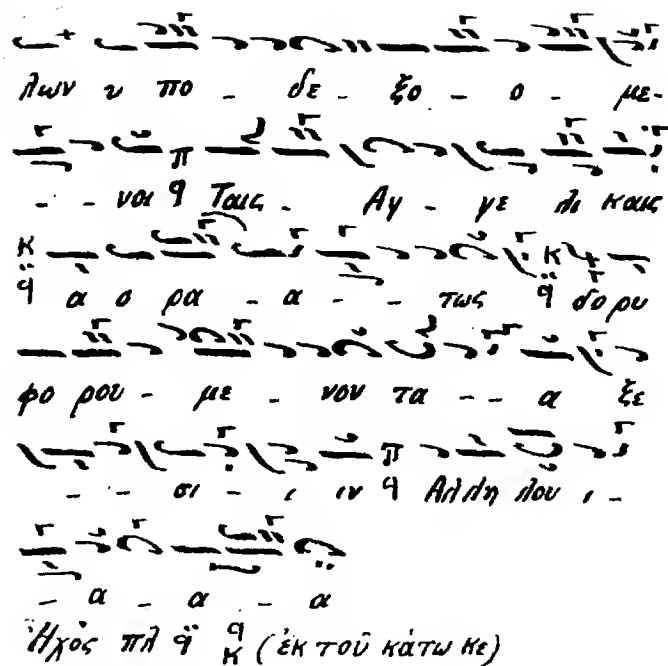 λων υ πο - δε - ξο - ο - με-
- - νοι ϥ Ταις - Αγ - γε λι καις
ϥ α ο ρα - α - - τως ϥ δορυ
φο ρου - με - νον τα - - α ξε
- - σι - ι ιν ϥ Αλλη λου ι -
- α - α - α
Ἦχος πλ ϥ̈ ϥ κ (ἐκ τοῦ κάτω κε)